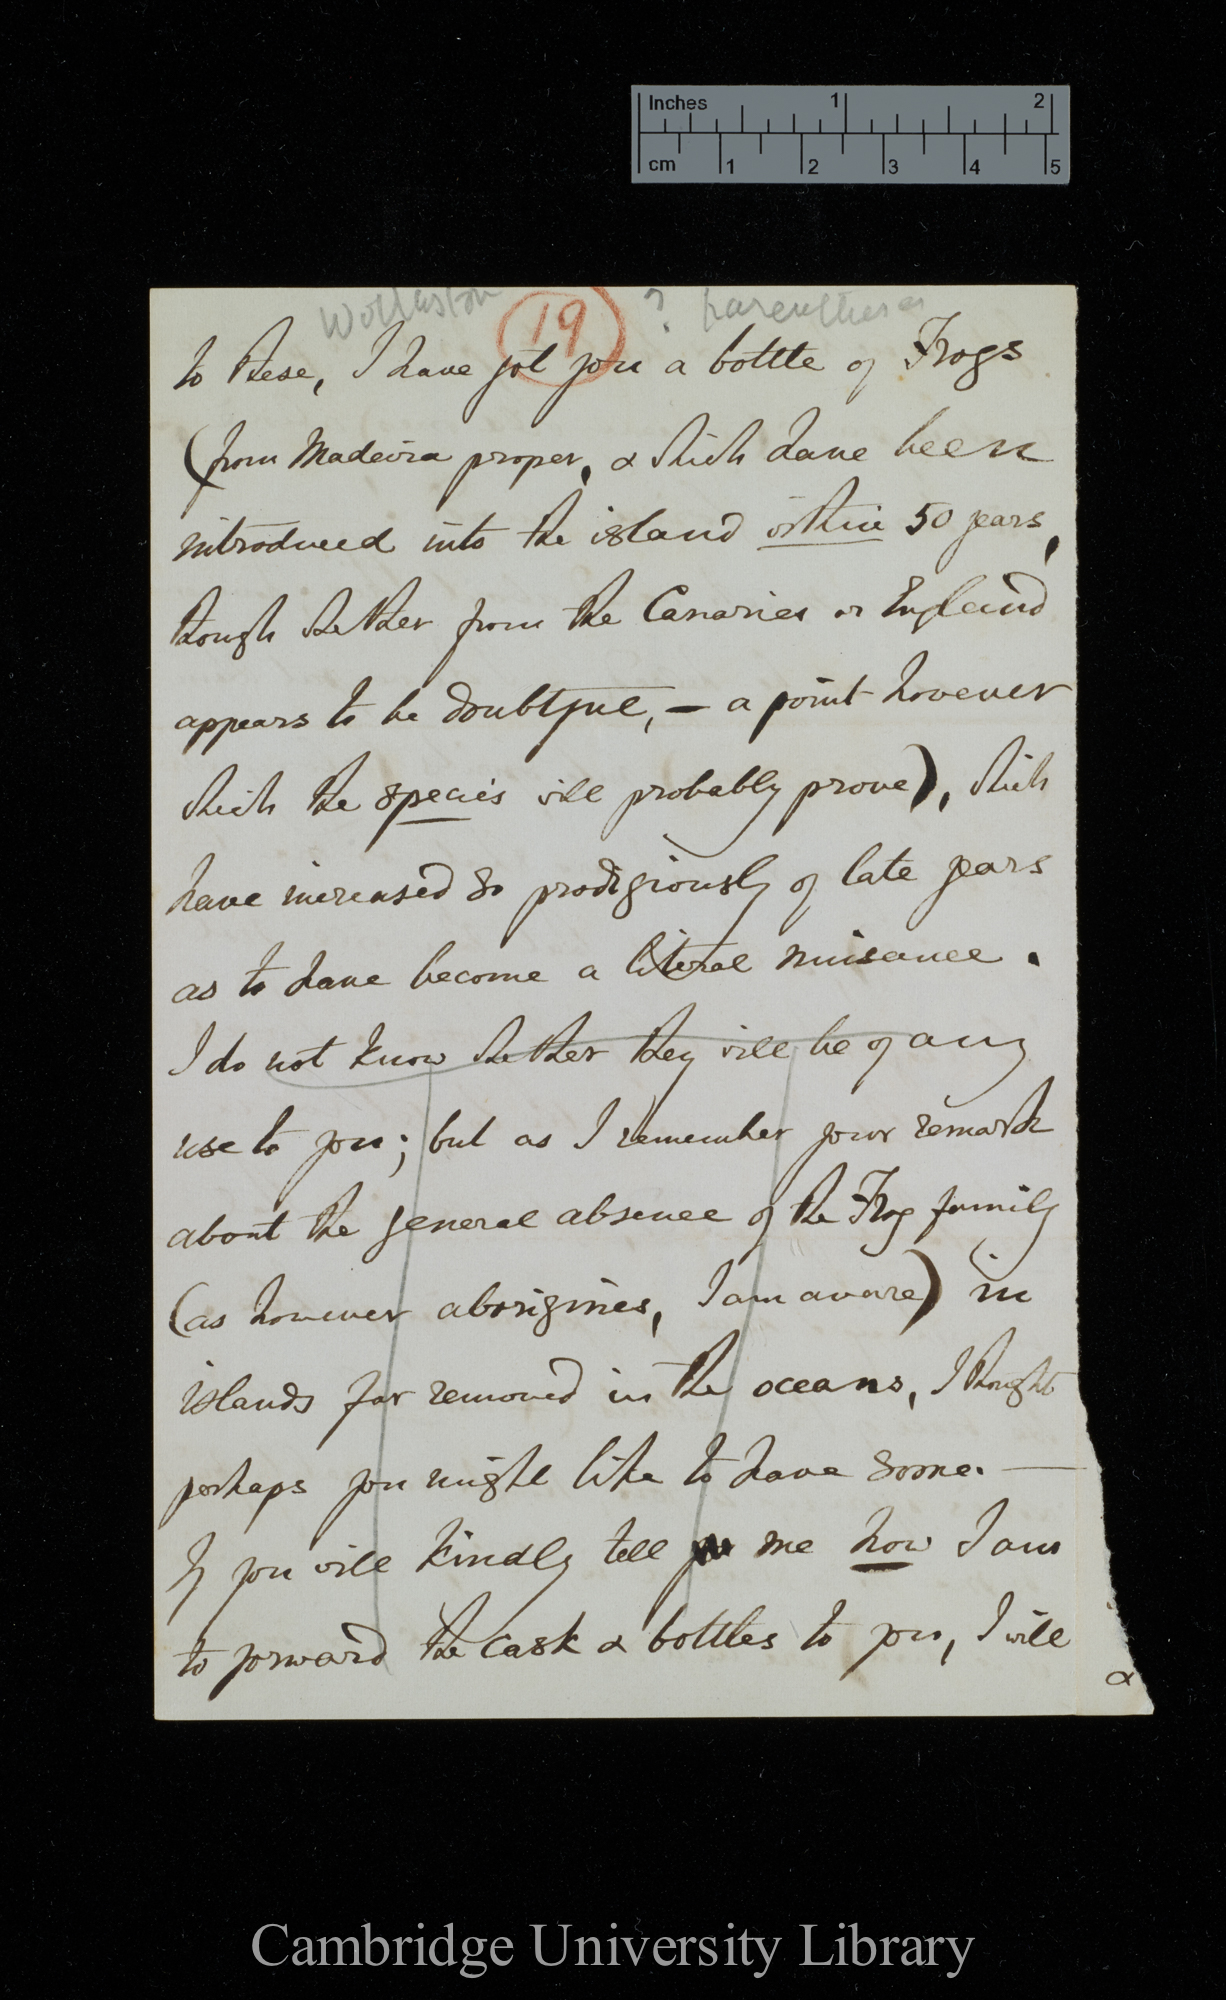 Inches 1 2
cm 1 2 3 4 5
Wollaston 19 ?
to these, I have got you a bottle of Frogs
(from Madeira proper, & which have been
introduced into the island within 50 years,
though whether from the Canaries or England
appears to be doubtful, — a point however
which the species will probably prove), which
have increased so prodigiously of late years
as to have become a literal nuisance.
I do not know whether they will be of any
use to you; but as I remember your remark
about the general absence of the Frog family
(as however aborigines, I am aware) in
islands far removed in the oceans, I thought
perhaps you might like to have some. —
If you will kindly tell me how I am
to forward the cask & bottles to you, I will
&
Cambridge University Library